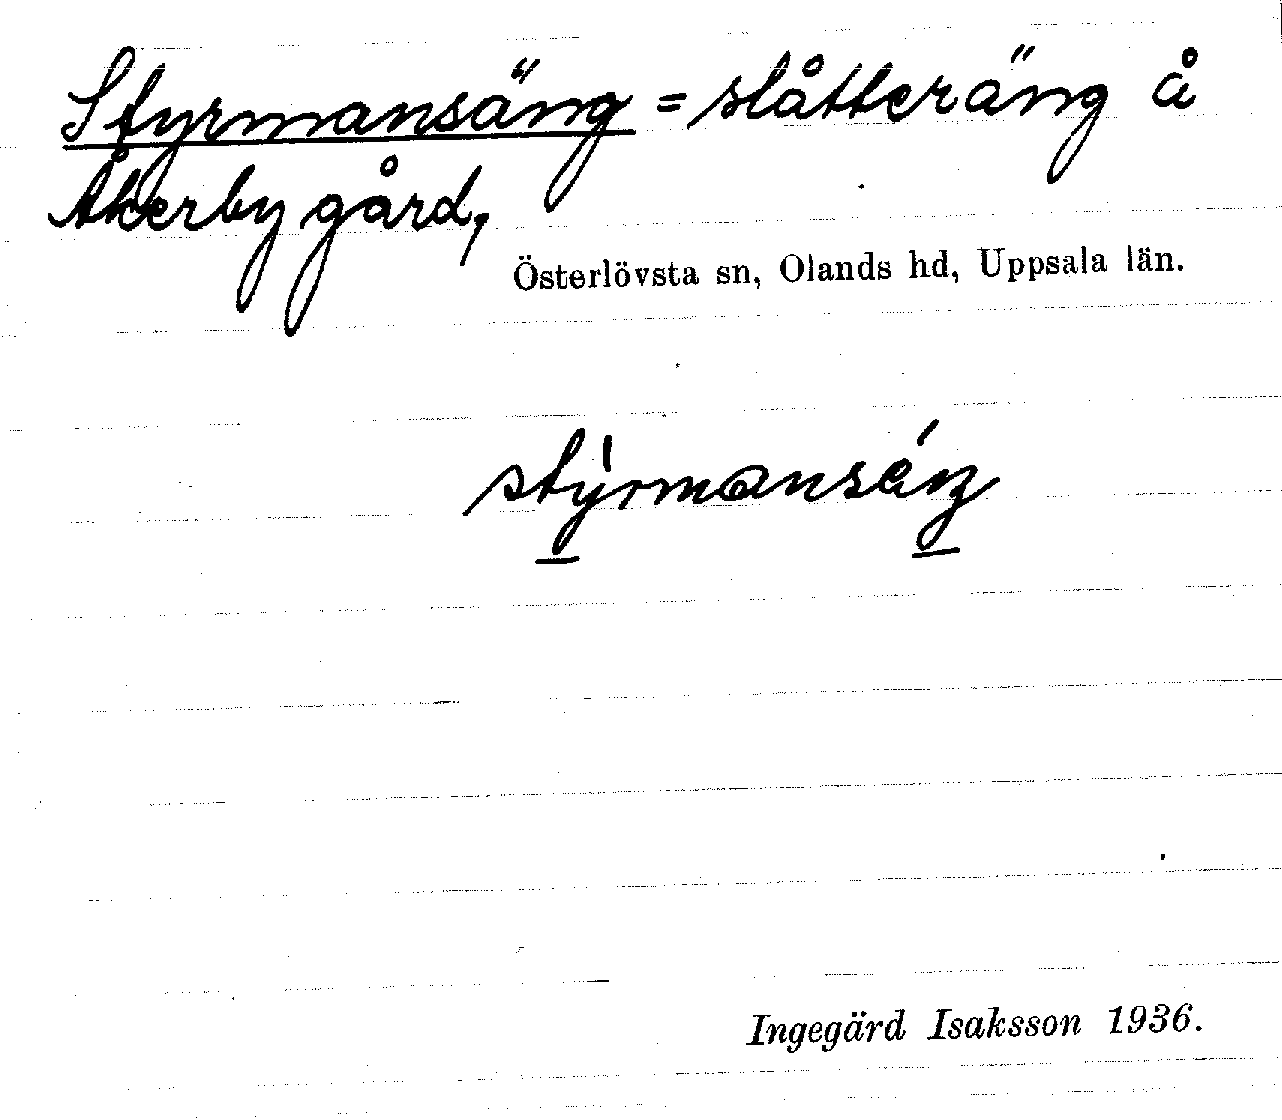 Styrmansäng = slåtteräng å
Åkerby gård,
Österlövsta sn, Olands hd, Uppsala län.
Ingegärd Isaksson 1936.